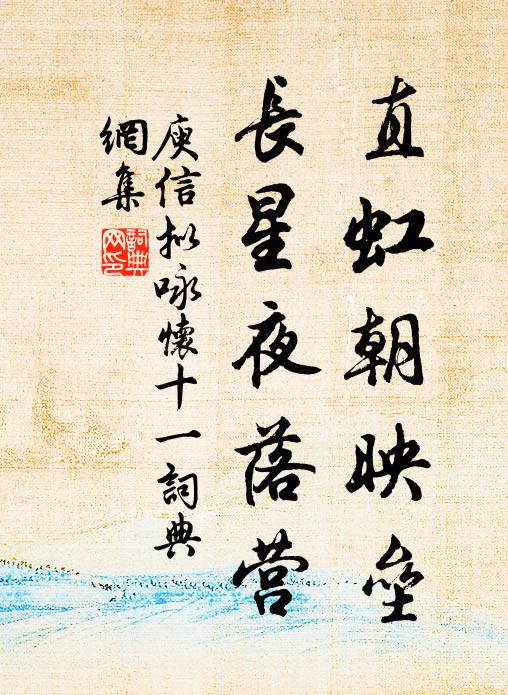 直虹朝映壘
長星夜落营
庾信拟咏懷十一詞典
網集
詞典網印